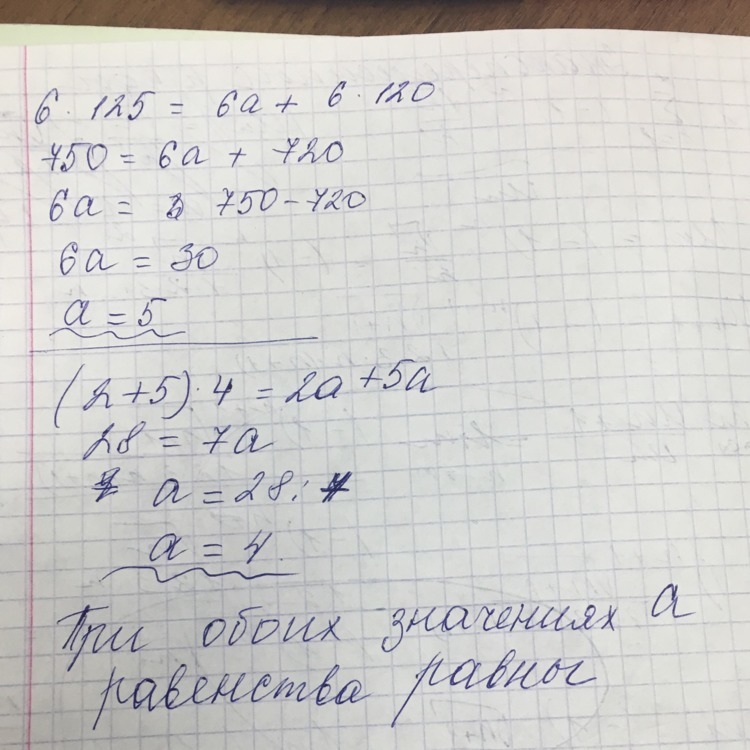 6 · 125 = 6a + 6 · 120
750 = 6a + 720
6a = 750 - 720
6a = 30
a = 5
(2+5) · 4 = 2a + 5a
28 = 7a
a = 28 :
a = 4.
При обоих значениях a
равенства равны